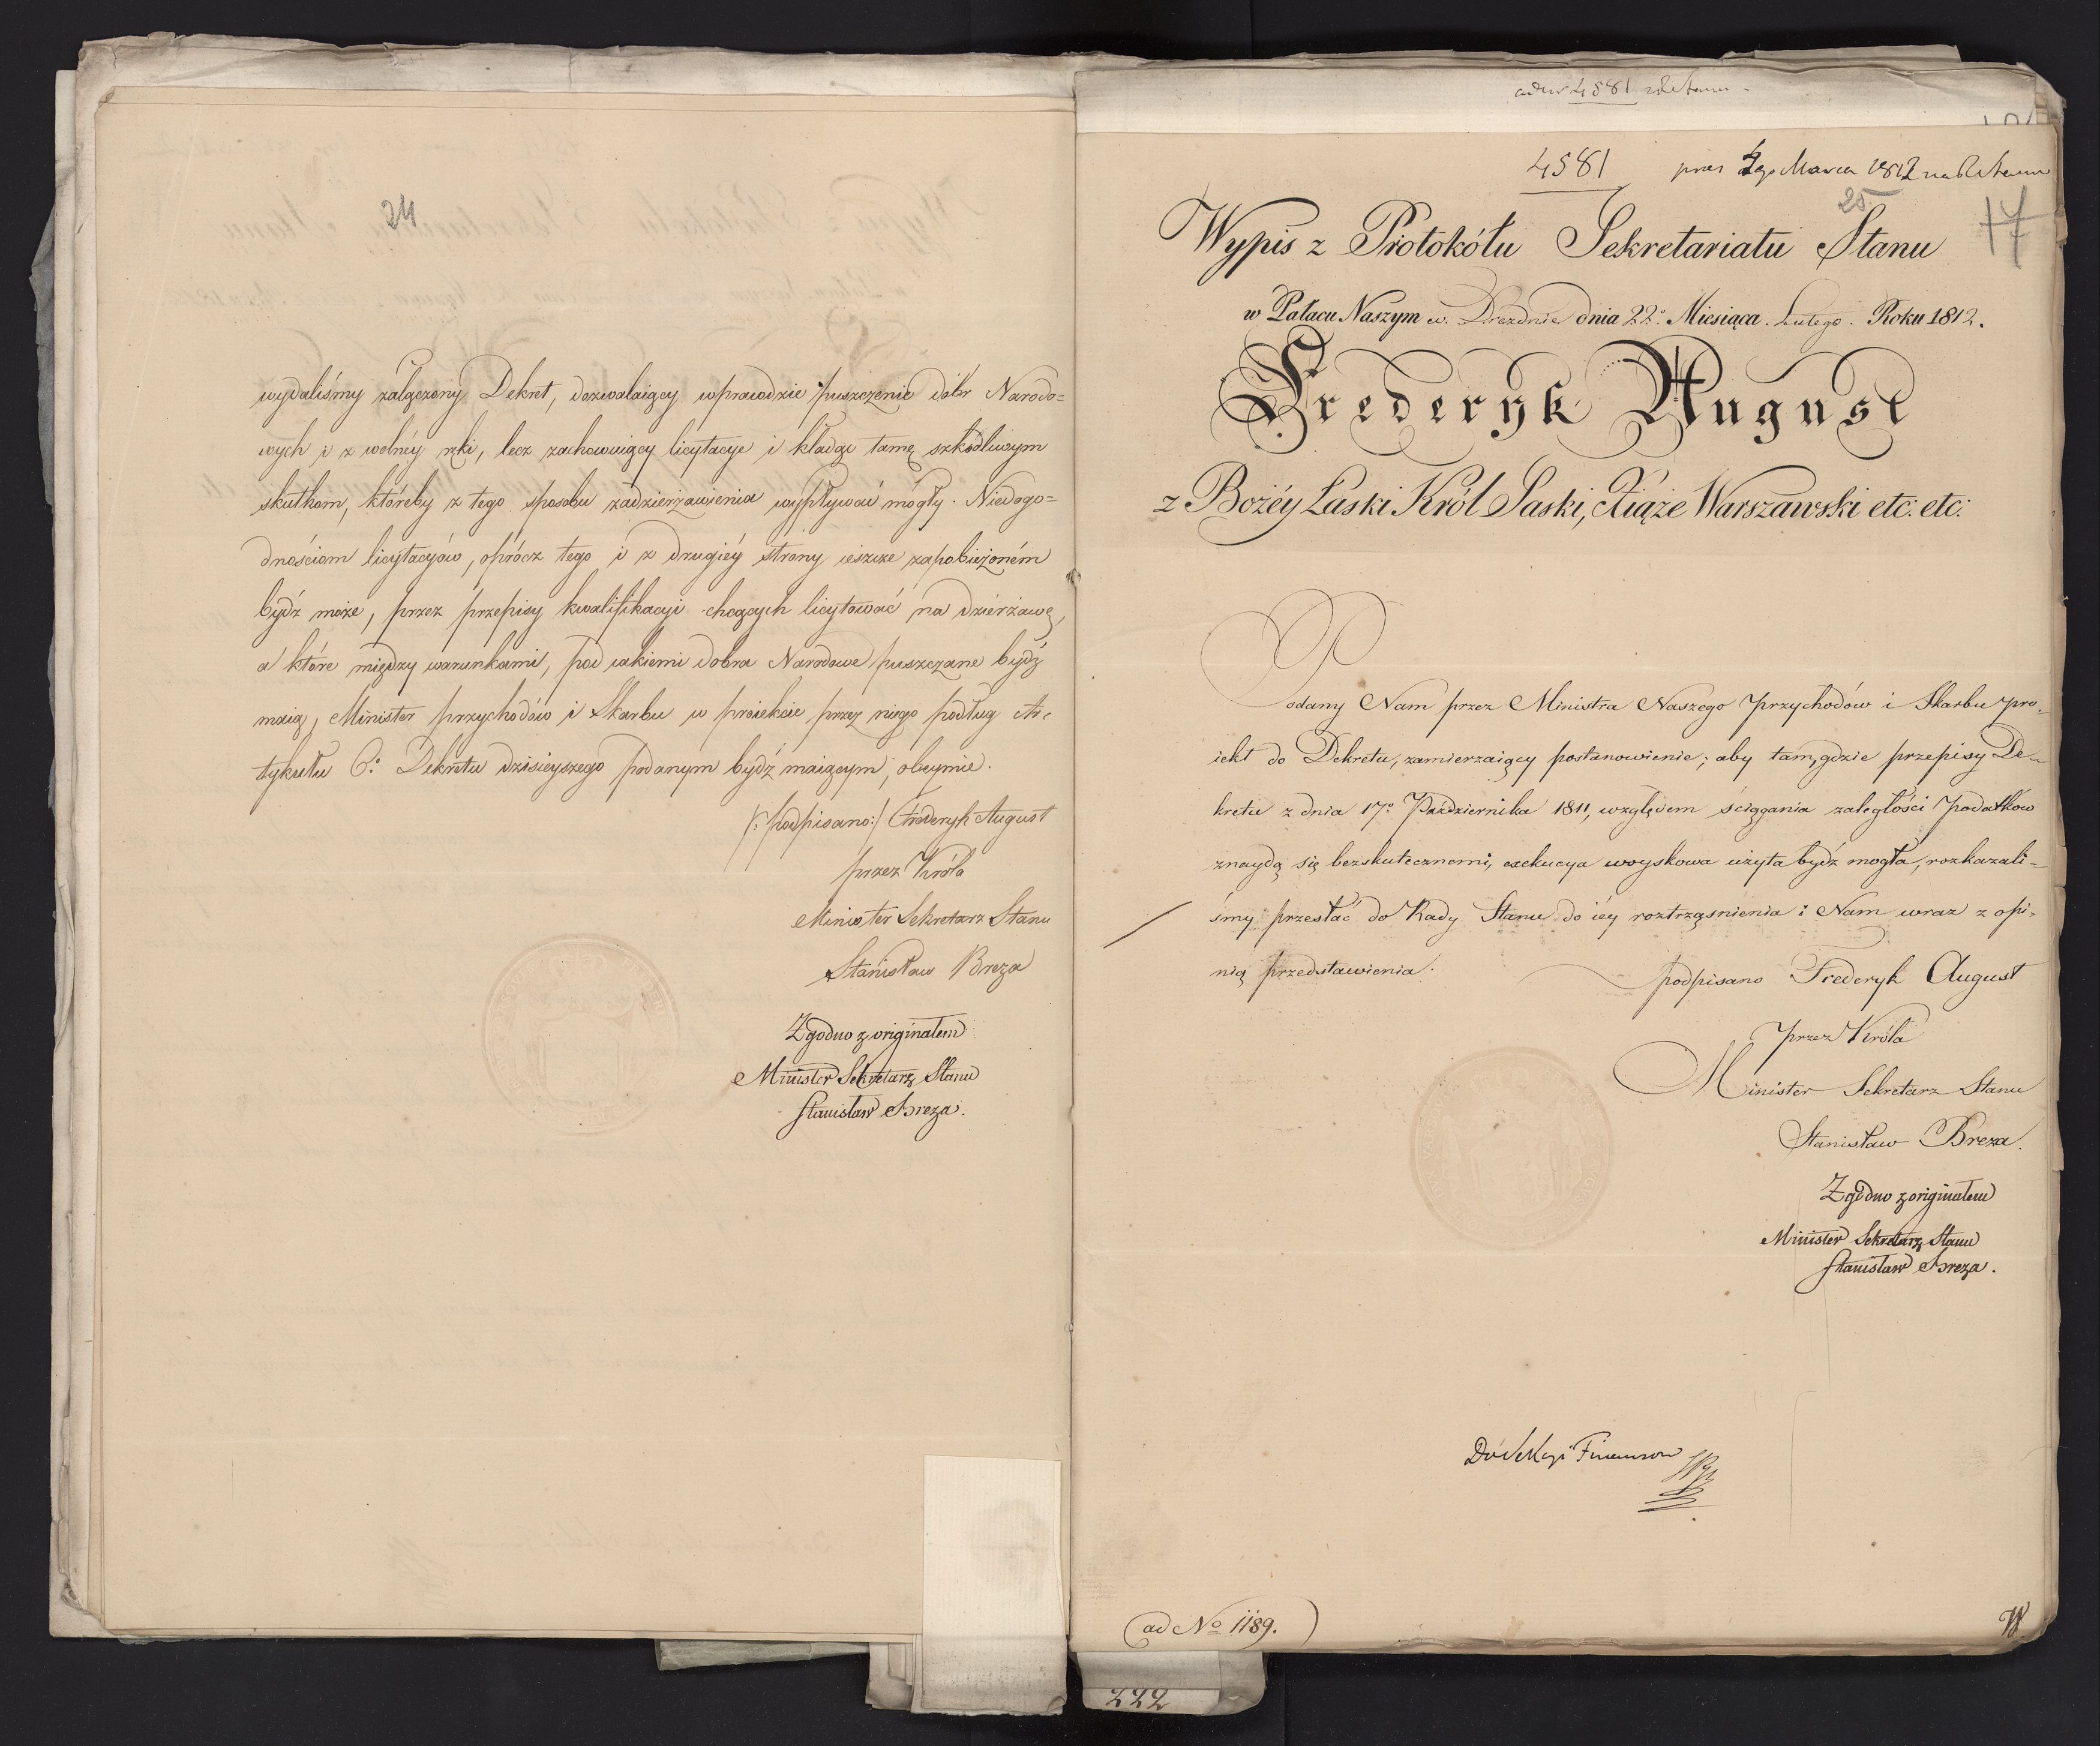 24
wydaliśmy załączony Dekret, dozwalaiący wprawdzie puszczenie dóbr Narodo=
wych i z wolnéy ręki, lecz zachowuiący licytacye i kładąc tamę szkodliwym
skutkom, któreby z tego sposobu zadzierżawienia wypływać mógły. Niedogo=
dnościom licytacyów, oprócz tego i z drugiéy strony ieszcze zapobieżoném
bydź może, przez przepisy kwalifikacyi chcących licytować na dzierżawę,
a które między warunkami, pod iakiemi dobra Narodowe puszczane bydź
maią, Minister przychodów i Skarbu w proiekcie przez niego podług Ar=
tykułu 6º Dekretu dzisieyszego podanym bydź maiącym, obeymie.
/: podpisano :/ Fréderyk August
przez Króla
Minister Sekretarz Stanu
Stanisław Breza
Zgodno z originałem
Minister Sekretarz Stanu
Stanisław Breza.
4581
4581 pres 2go Marca 1812
25
17
Wypis z Protokółu Sekretariatu Stanu
w Pałacu Naszym w Dreźdnie dnia 22º Miesiąca Lutego Roku 1812.
Frederyk August
z Bożéy Łaski Król Saski, Xiąże Warszawski etc: etc:
Podany Nam przez Ministra Naszego Przychodów i Skarbu pro=
iekt do Dekretu, zamierzaiący postanowienie; aby tam, gdzie przepisy De=
kretu z dnia 17º Października 1811, względem ściągania zaległości Podatków
znaydą się bezskutecznemi, exekucya woyskowa użyta bydź mogła, rozkazali=
śmy przesłać do Rady Stanu do iéy roztrząśnienia i Nam wraz z opi=
nią przedstawienia.
podpisano Frederyk August
przez Króla
Minister Sekretarz Stanu
Stanisław Breza.
Zgodno z originałem
Minister Sekretarz Stanu
Stanisław Breza.
Do Sekcyi Finansow
(ad Nº 1189.)
W
222